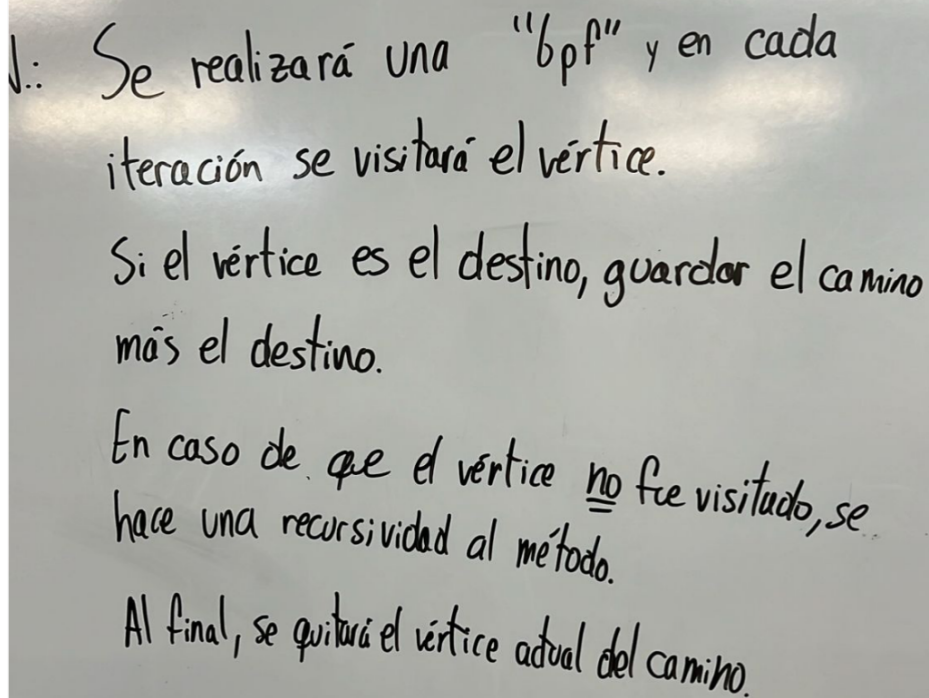 N.: Se realizará una "bpf" y en cada
iteración se visitará el vértice.
Si el vértice es el destino, guardar el camino
más el destino.
En caso de que el vértice no fue visitado, se
hace una recursividad al método.
Al final, se quitará el vértice actual del camino.